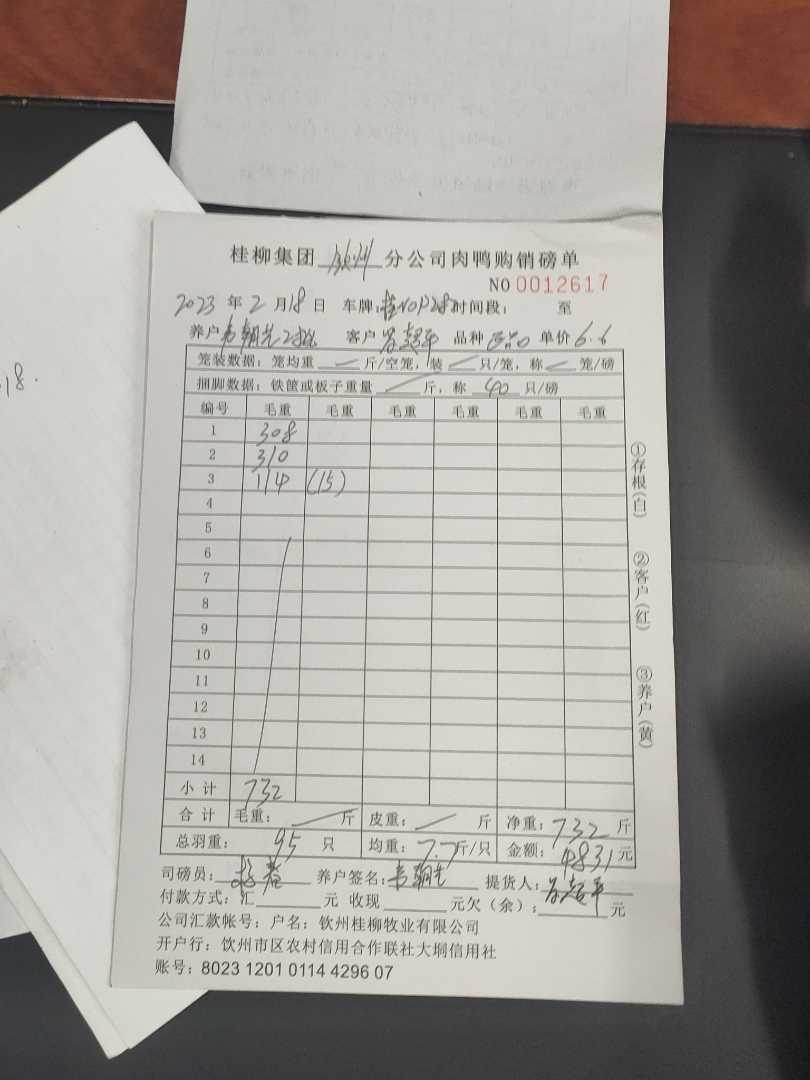 18.
桂柳集团 钦州 分公司肉鸭购销磅单
NO 0012617
2023 年 2 月 18 日 车牌: 时间段: 至
养户 客户 品种 单价 6.6
笼装数据: 笼均重 斤/空笼, 装 只/笼, 称 笼/磅
捆脚数据: 铁筐或板子重量 斤, 称 40 只/磅
编号 毛重 毛重 毛重 毛重 毛重 毛重
1 308
2 310
3 114 (15)
4
5
6
7
8
9
10
11
12
13
14
小计 732
合计 毛重: 斤 皮重: 斤 净重: 732 斤
总羽重: 95 只 均重: 7.7 斤/只 金额: 4831 元
司磅员: 养户签名: 提货人:
付款方式: 汇 元 收现 元欠(余): 元
公司汇款帐号: 户名: 钦州桂柳牧业有限公司
开户行: 饮州市区农村信用合作联社大垌信用社
账号: 8023 1201 0114 4296 07
①存根(白) ②客户(红) ③养户(黄)